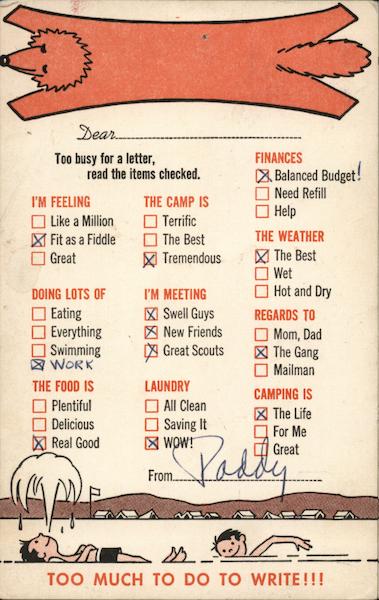 Dear
Too busy for a letter,
read the items checked.
I'M FEELING
Like a Million
Fit as a Fiddle
Great
DOING LOTS OF
Eating
Everything
Swimming
WORK
THE FOOD IS
Plentiful
Delicious
Real Good
THE CAMP IS
Terrific
The Best
Tremendous
I'M MEETING
Swell Guys
New Friends
Great Scouts
LAUNDRY
All Clean
Saving It
WOW!
FINANCES
Balanced Budget!
Need Refill
Help
THE WEATHER
The Best
Wet
Hot and Dry
REGARDS TO
Mom, Dad
The Gang
Mailman
CAMPING IS
The Life
For Me
Great
From Paddy
TOO MUCH TO DO TO WRITE!!!